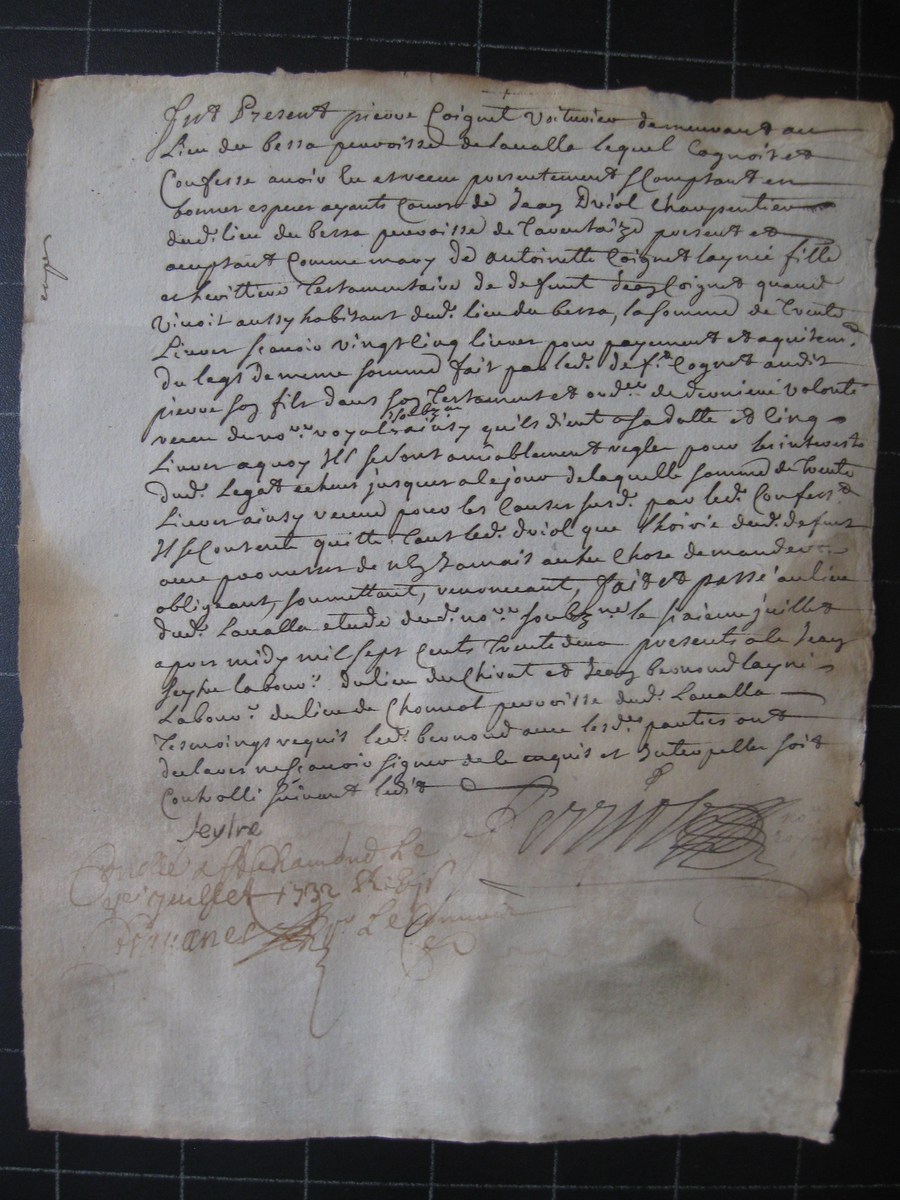 Fut Present pierre Coignet Voiturier demeurant au
Lieu du bessa perroisse de lavalla lequel Cognoit et
Confesse avoir Eu et receu presentement & Comptant en
bonnes especes ayants Cours de Jean Driol Charpentier
dud. lieu du bessa perroisse de Tarentaize present et
aceptant Comme mary de Antoinette Coignet laynée fille
et heritiere Testamentaire de deffunt Jean Coignet quand
Vivoit aussy habitant dud. lieu du bessa, la somme de Trente
Livres scavoir vingt Cinq livres pour payement et aquitem.t
du legs de meme somme fait par led. def.t Cognet audit
pierre son fils dans son Testament et ord.re de derniere volonté
receu de no.re royal soubz.né ainsy qu'ils dient a sa datte et Cinq
Livres a quoy Ils se sont amiablement regles pour les interests
dud. Legat echeus jusques a le jour de laquelle somme de Trente
Livres ainsy receue pour les Causes susd. par led. Confess.t
Il se Contente quitte tant led. driol que l'hoirie dud. defunt
avec promesses de n'En Jamais autre Chose demander
obligeant, soumettant, renoncant, Fait et passé au lieu
dud. Lavalla etude dud. no.re soubz.né le sixieme juillet
apres midy mil sept Cents Trente deux presents a le Jean
seytre labour.r du lieu du Chirat et Jean bernond layné
Labour.r du lieu de Chomiol perroisse dud. Lavalla
Tesmoings requis led. bernond avec lesd. parties ont
declarer ne scavoir signer de le enquis et Interpelles soit
Controllé suivant ledit
seytre
Perriolat
a St Chamond Le
juillet 1732